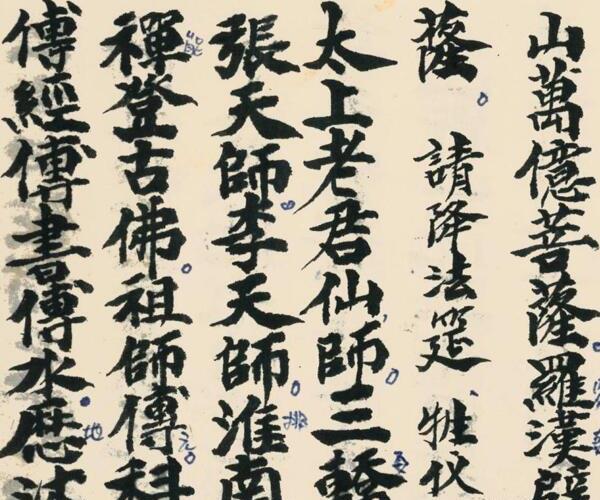 山萬億菩薩羅漢
薩 請降法筵 牲仪
太上老君仙師三
張天師李天師淮南
禪登古佛祖師傅科
傅經傅書傅水